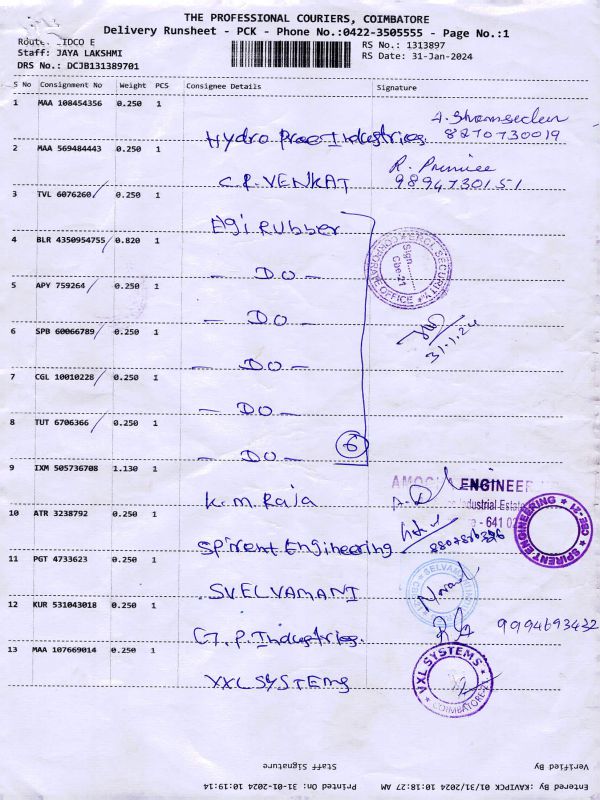 THE PROFESSIONAL COURIERS, COIMBATORE
Delivery Runsheet - PCK - Phone No.:0422-3505555 - Page No.:1
RS No.: 1313897
Staff: JAYA LAKSHMI
RS Date: 31-Jan-2024
DRS No.: DCJB131389701
S No Consignment No Weight PCS Consignee Details Signature
1 MAA 108454356 0.250 1
Hydro Prae Industries
8270730019
2 MAA 569484443 0.250 1
C.R. VENKAT
9894730151
3 TVL 6076260 0.250 1
Elgi Rubber
4 BLR 4350954755 0.820 1
- DO -
5 APY 759264 0.250 1
- DO -
31.1.24
6 SPB 60066789 0.250 1
- DO -
7 CGL 10010228 0.250 1
- DO -
8 TUT 6706366 0.250 1
- DO -
6
9 IXM 505736708 1.130 1
K.M. Raja
ENGINEER
Industrial Estate
10 ATR 3238792 0.250 1
Spirent Engineering
SPIRENT ENGINEERING CBE-21
11 PGT 4733623 0.250 1
SVELVAMANI
12 KUR 531043018 0.250 1
G.P. Industries.
9994693432
13 MAA 107669014 0.250 1
VXL SYSTEMS
VXL SYSTEMS
COIMBATORE-21
Staff Signature
Verified By
Printed On: 31-01-2024 10:19:14
Entered By: KAVIPCK 01/31/2024 10:18:27 AM